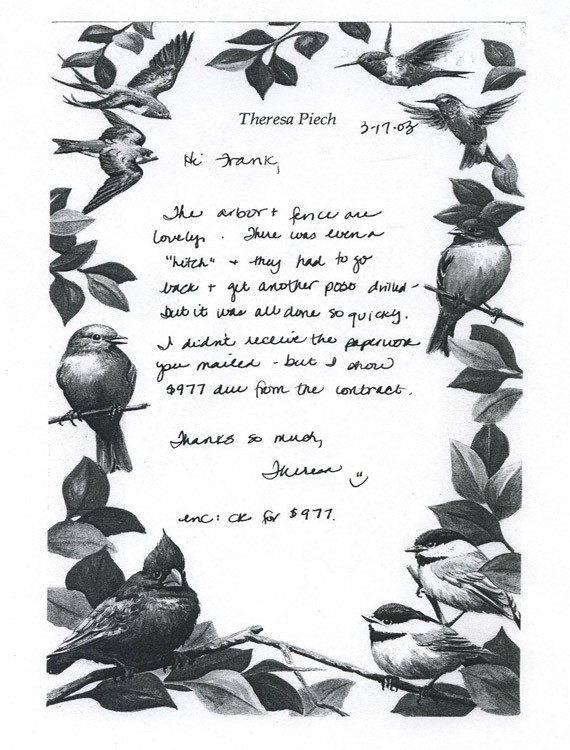 Theresa Piech
3-17-03
Hi Frank,
The arbor + fence are
lovely. There was even a
"hitch" + they had to go
back + get another post drilled -
but it was all done so quickly.
I didn't receive the paperwork
you mailed - but I show
$977 due from the contract.
Thanks so much,
Theresa
enc: ck for $977.